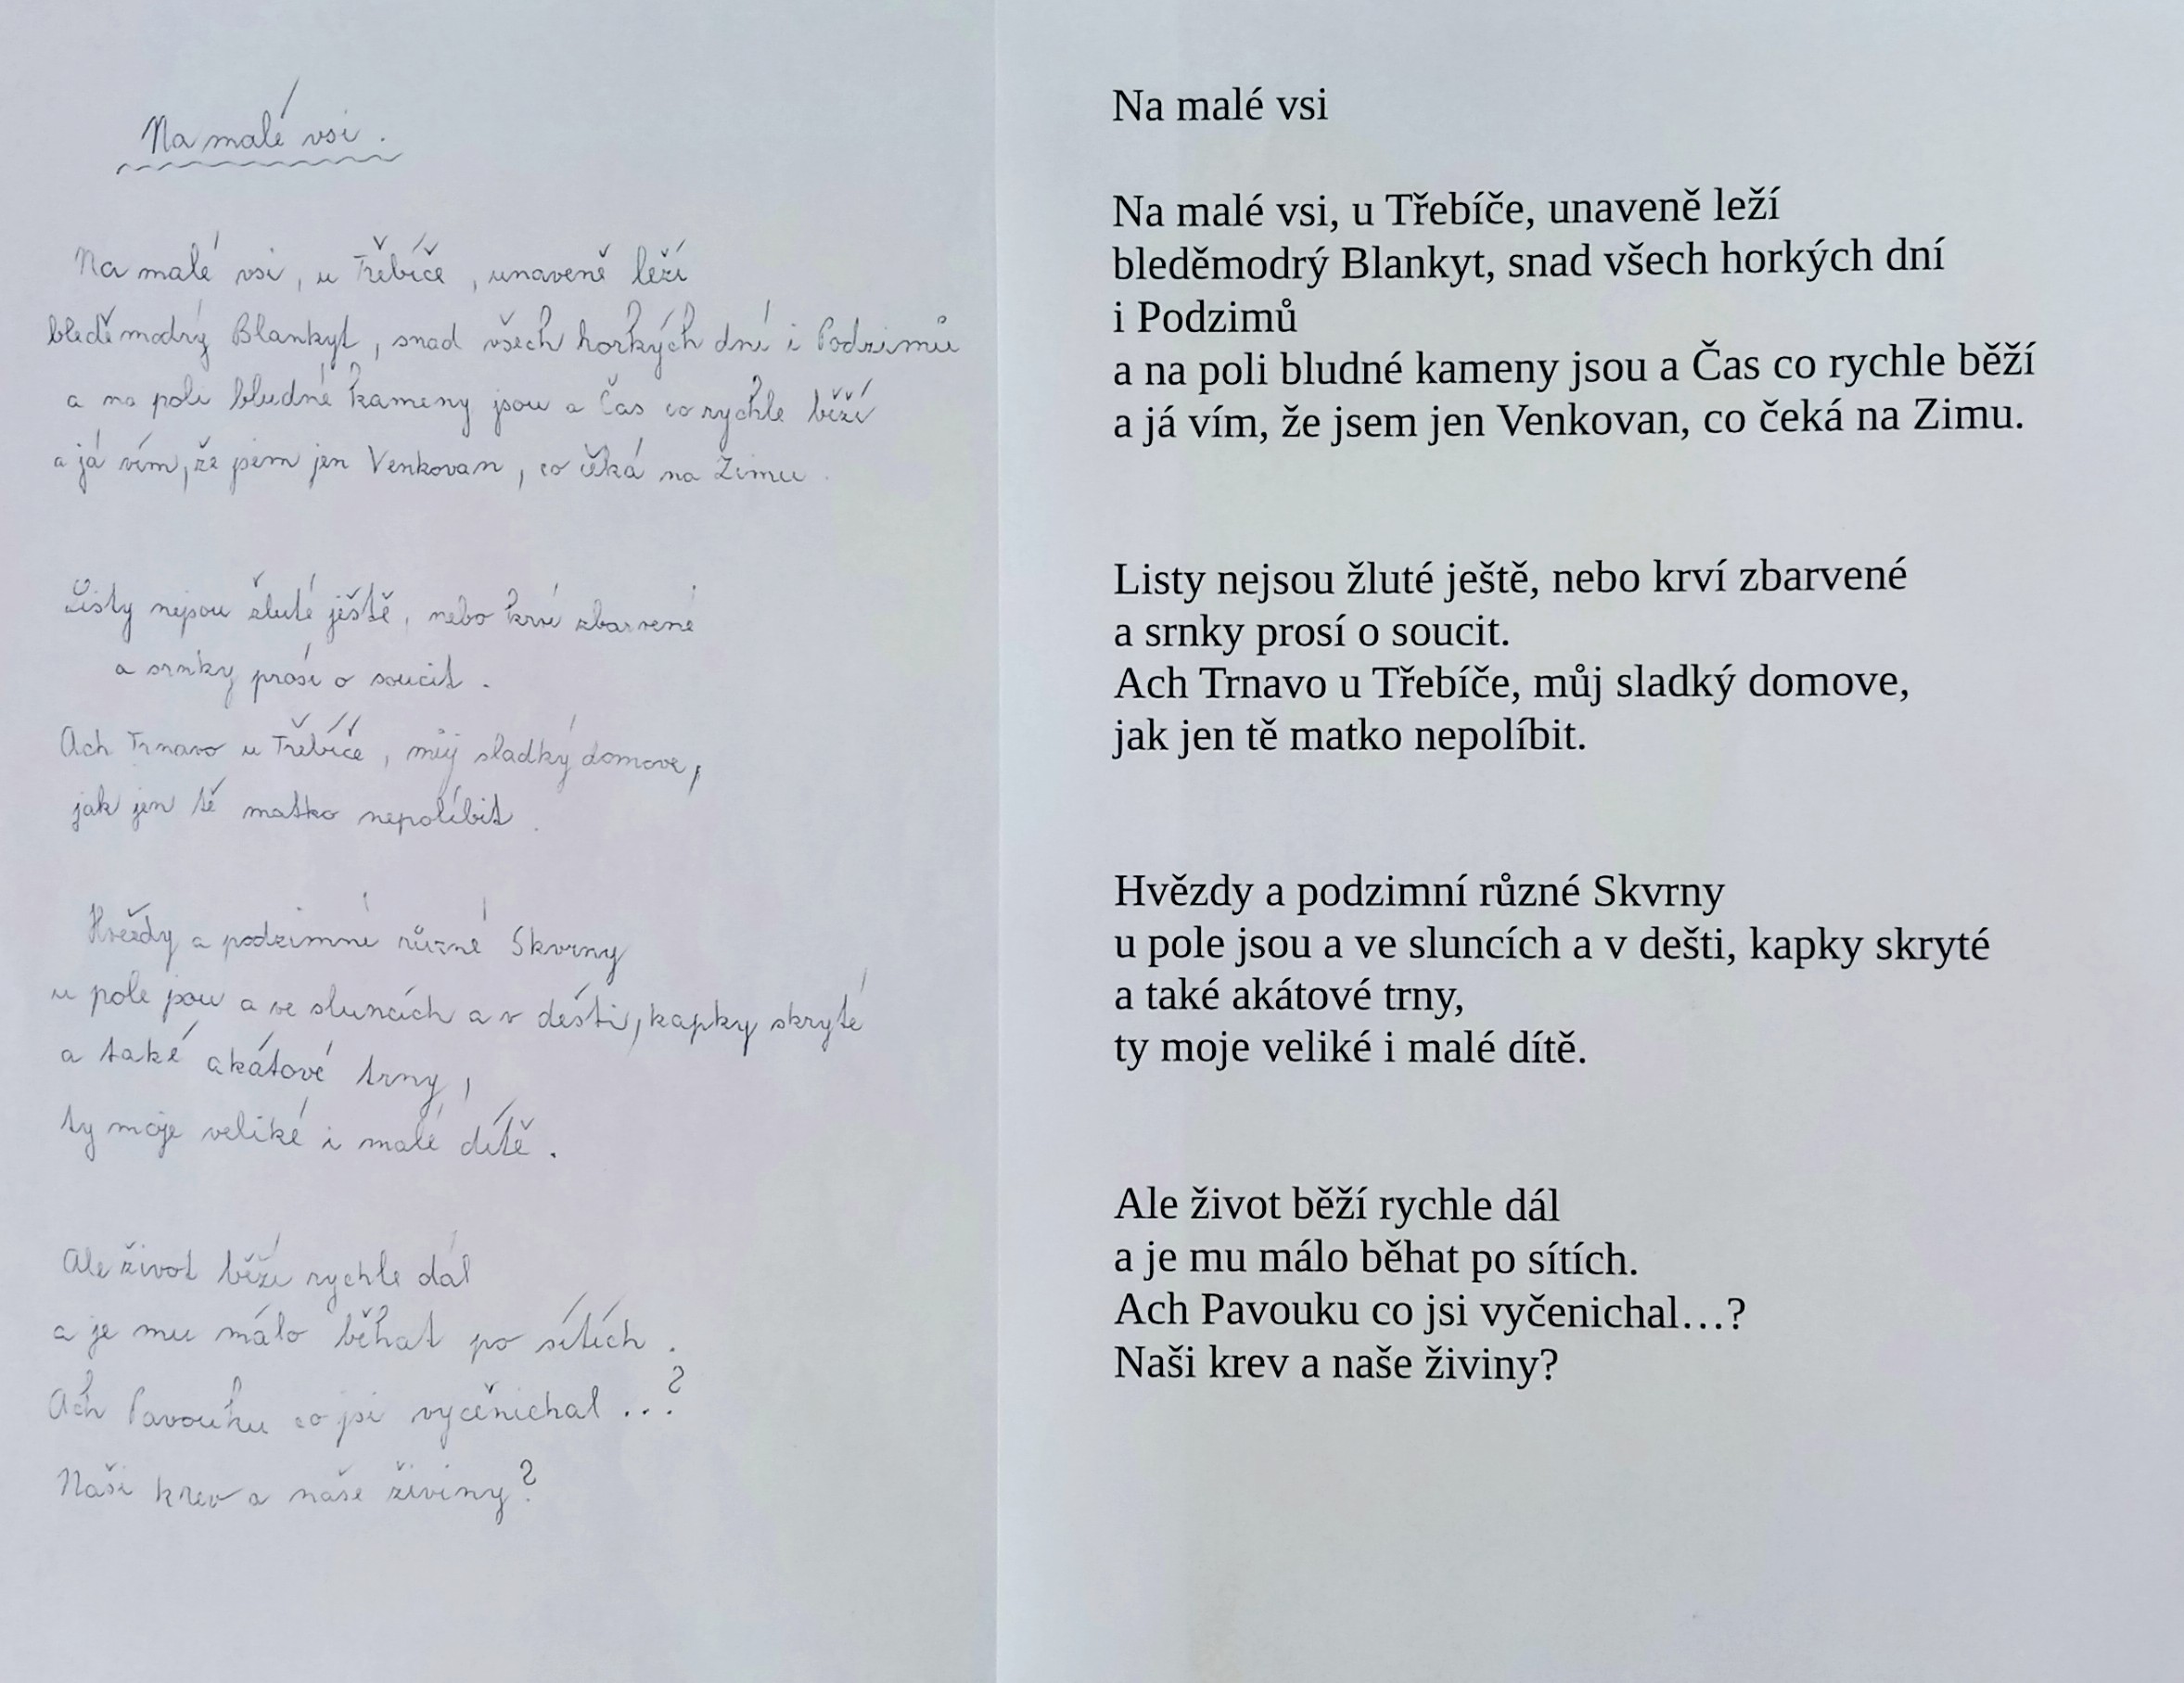 Na malé vsi.
Na malé vsi, u Třebíče, unaveně leží
bleděmodrý Blankyt, snad všech horkých dní i Podzimů
a na poli bludné kameny jsou a Čas co rychle běží
a já vím, že jsem jen Venkovan, co čeká na Zimu.
Listy nejsou žluté ještě, nebo krví zbarvené
a srnky prosí o soucit.
Ach Trnavo u Třebíče, můj sladký domove,
jak jen tě matko nepolíbit.
Hvězdy a podzimní různé Skvrny
u pole jsou a ve sluncích a v dešti, kapky skryté
a také akátové trny,
ty moje veliké i malé dítě.
Ale život běží rychle dál
a je mu málo běhat po sítích.
Ach Pavouku co jsi vyčenichal...?
Naši krev a naše živiny?
Na malé vsi
Na malé vsi, u Třebíče, unaveně leží
bleděmodrý Blankyt, snad všech horkých dní
i Podzimů
a na poli bludné kameny jsou a Čas co rychle běží
a já vím, že jsem jen Venkovan, co čeká na Zimu.
Listy nejsou žluté ještě, nebo krví zbarvené
a srnky prosí o soucit.
Ach Trnavo u Třebíče, můj sladký domove,
jak jen tě matko nepolíbit.
Hvězdy a podzimní různé Skvrny
u pole jsou a ve sluncích a v dešti, kapky skryté
a také akátové trny,
ty moje veliké i malé dítě.
Ale život běží rychle dál
a je mu málo běhat po sítích.
Ach Pavouku co jsi vyčenichal…?
Naši krev a naše živiny?